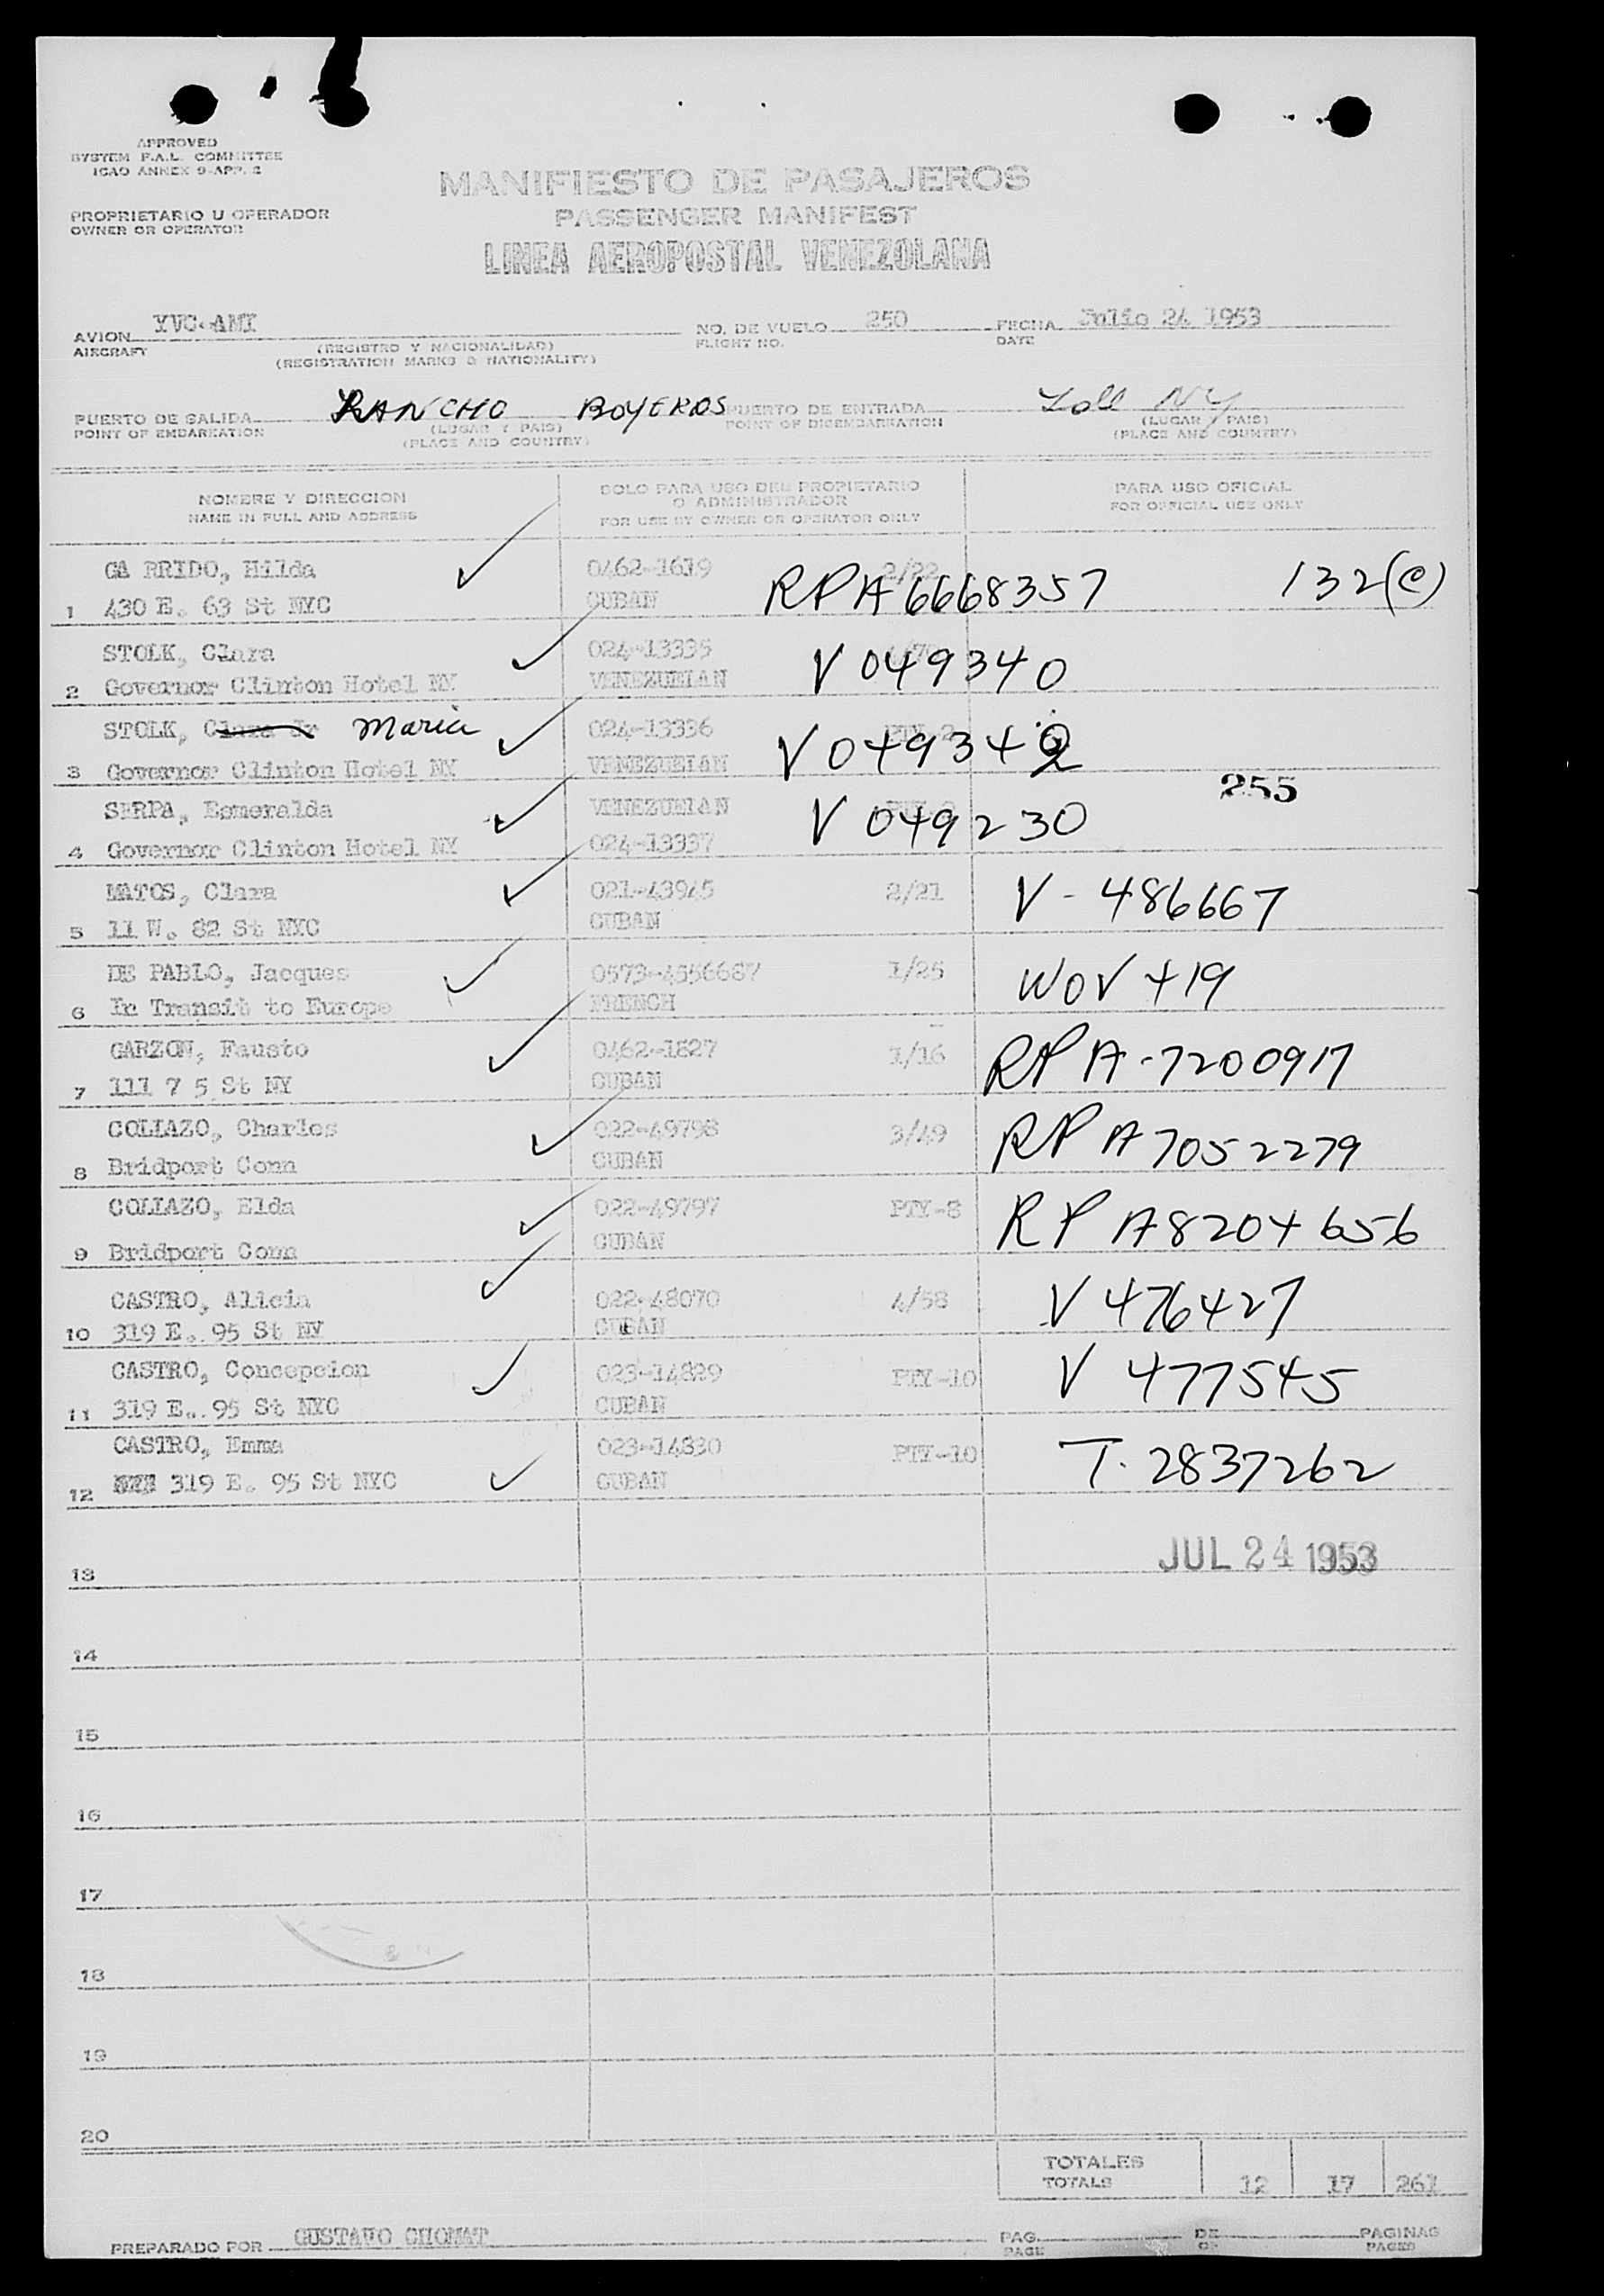 APPROVED
SYSTEM F.A.L. COMMITTEE
ICAO ANNEX 9-APP. 2
MANIFIESTO DE PASAJEROS
PROPRIETARIO U OPERADOR
OWNER OR OPERATOR
PASSENGER MANIFEST
LINEA AEROPOSTAL VENEZOLANA
AVION YVC-AMI NO. DE VUELO 250 FECHA Julio 24 1953
AIRCRAFT (REGISTRO Y NACIONALIDAD) FLIGHT NO. DATE
(REGISTRATION MARKS & NATIONALITY)
PUERTO DE SALIDA RANCHO BOYEROS PUERTO DE ENTRADA NY
POINT OF EMBARKATION (LUGAR Y PAIS) POINT OF DISEMBARKATION (LUGAR Y PAIS)
(PLACE AND COUNTRY) (PLACE AND COUNTRY)
NOMBRE Y DIRECCION SOLO PARA USO DEL PROPIETARIO PARA USO OFICIAL
O ADMINISTRADOR
NAME IN FULL AND ADDRESS FOR USE BY OWNER OR OPERATOR ONLY FOR OFFICIAL USE ONLY
GA RRIDO, Hilda 0462-1619 2/22 RPA 6668357 132(C)
1 430 E. 63 St NYC CUBAN
STOLK, Clara 024-13335 V 049340
2 Governor Clinton Hotel NY VENEZUELAN
STOLK, Clara Jr Maria 024-13336 PTY-2 V 049342
3 Governor Clinton Hotel NY VENEZUELAN
255
SERPA, Esmeralda VENEZUELAN V 049230
4 Governor Clinton Hotel NY 024-13337
MATOS, Clara 021-43945 2/21 V-486667
5 11 W. 82 St NYC CUBAN
DE PABLO, Jacques 0573-4556687 1/25 WOV 419
6 In Transit to Europe FRENCH
GARZON, Fausto 0462-1827 1/16 RPA-7200917
7 111 7 5 St NY CUBAN
COLLAZO, Charles 022-49798 3/49 RPA 7052279
8 Bridport Conn CUBAN
COLLAZO, Elda 022-49797 PTY-8 RPA 8204656
9 Bridport Conn CUBAN
CASTRO, Alicia 022-48070 4/58 V 476427
10 319 E. 95 St NY CUBAN
CASTRO, Concepcion 023-14829 PTY-10 V 477545
11 319 E. 95 St NYC CUBAN
CASTRO, Emma 023-14830 PTY-10 T. 2837262
12 319 E. 95 St NYC CUBAN
JUL 24 1953
13
14
15
16
17
18
19
20
TOTALES
TOTALS 12 17 261
PREPARADO POR GUSTAVO CHOMAT PAG. DE PAGINAS
PAGE OF PAGES